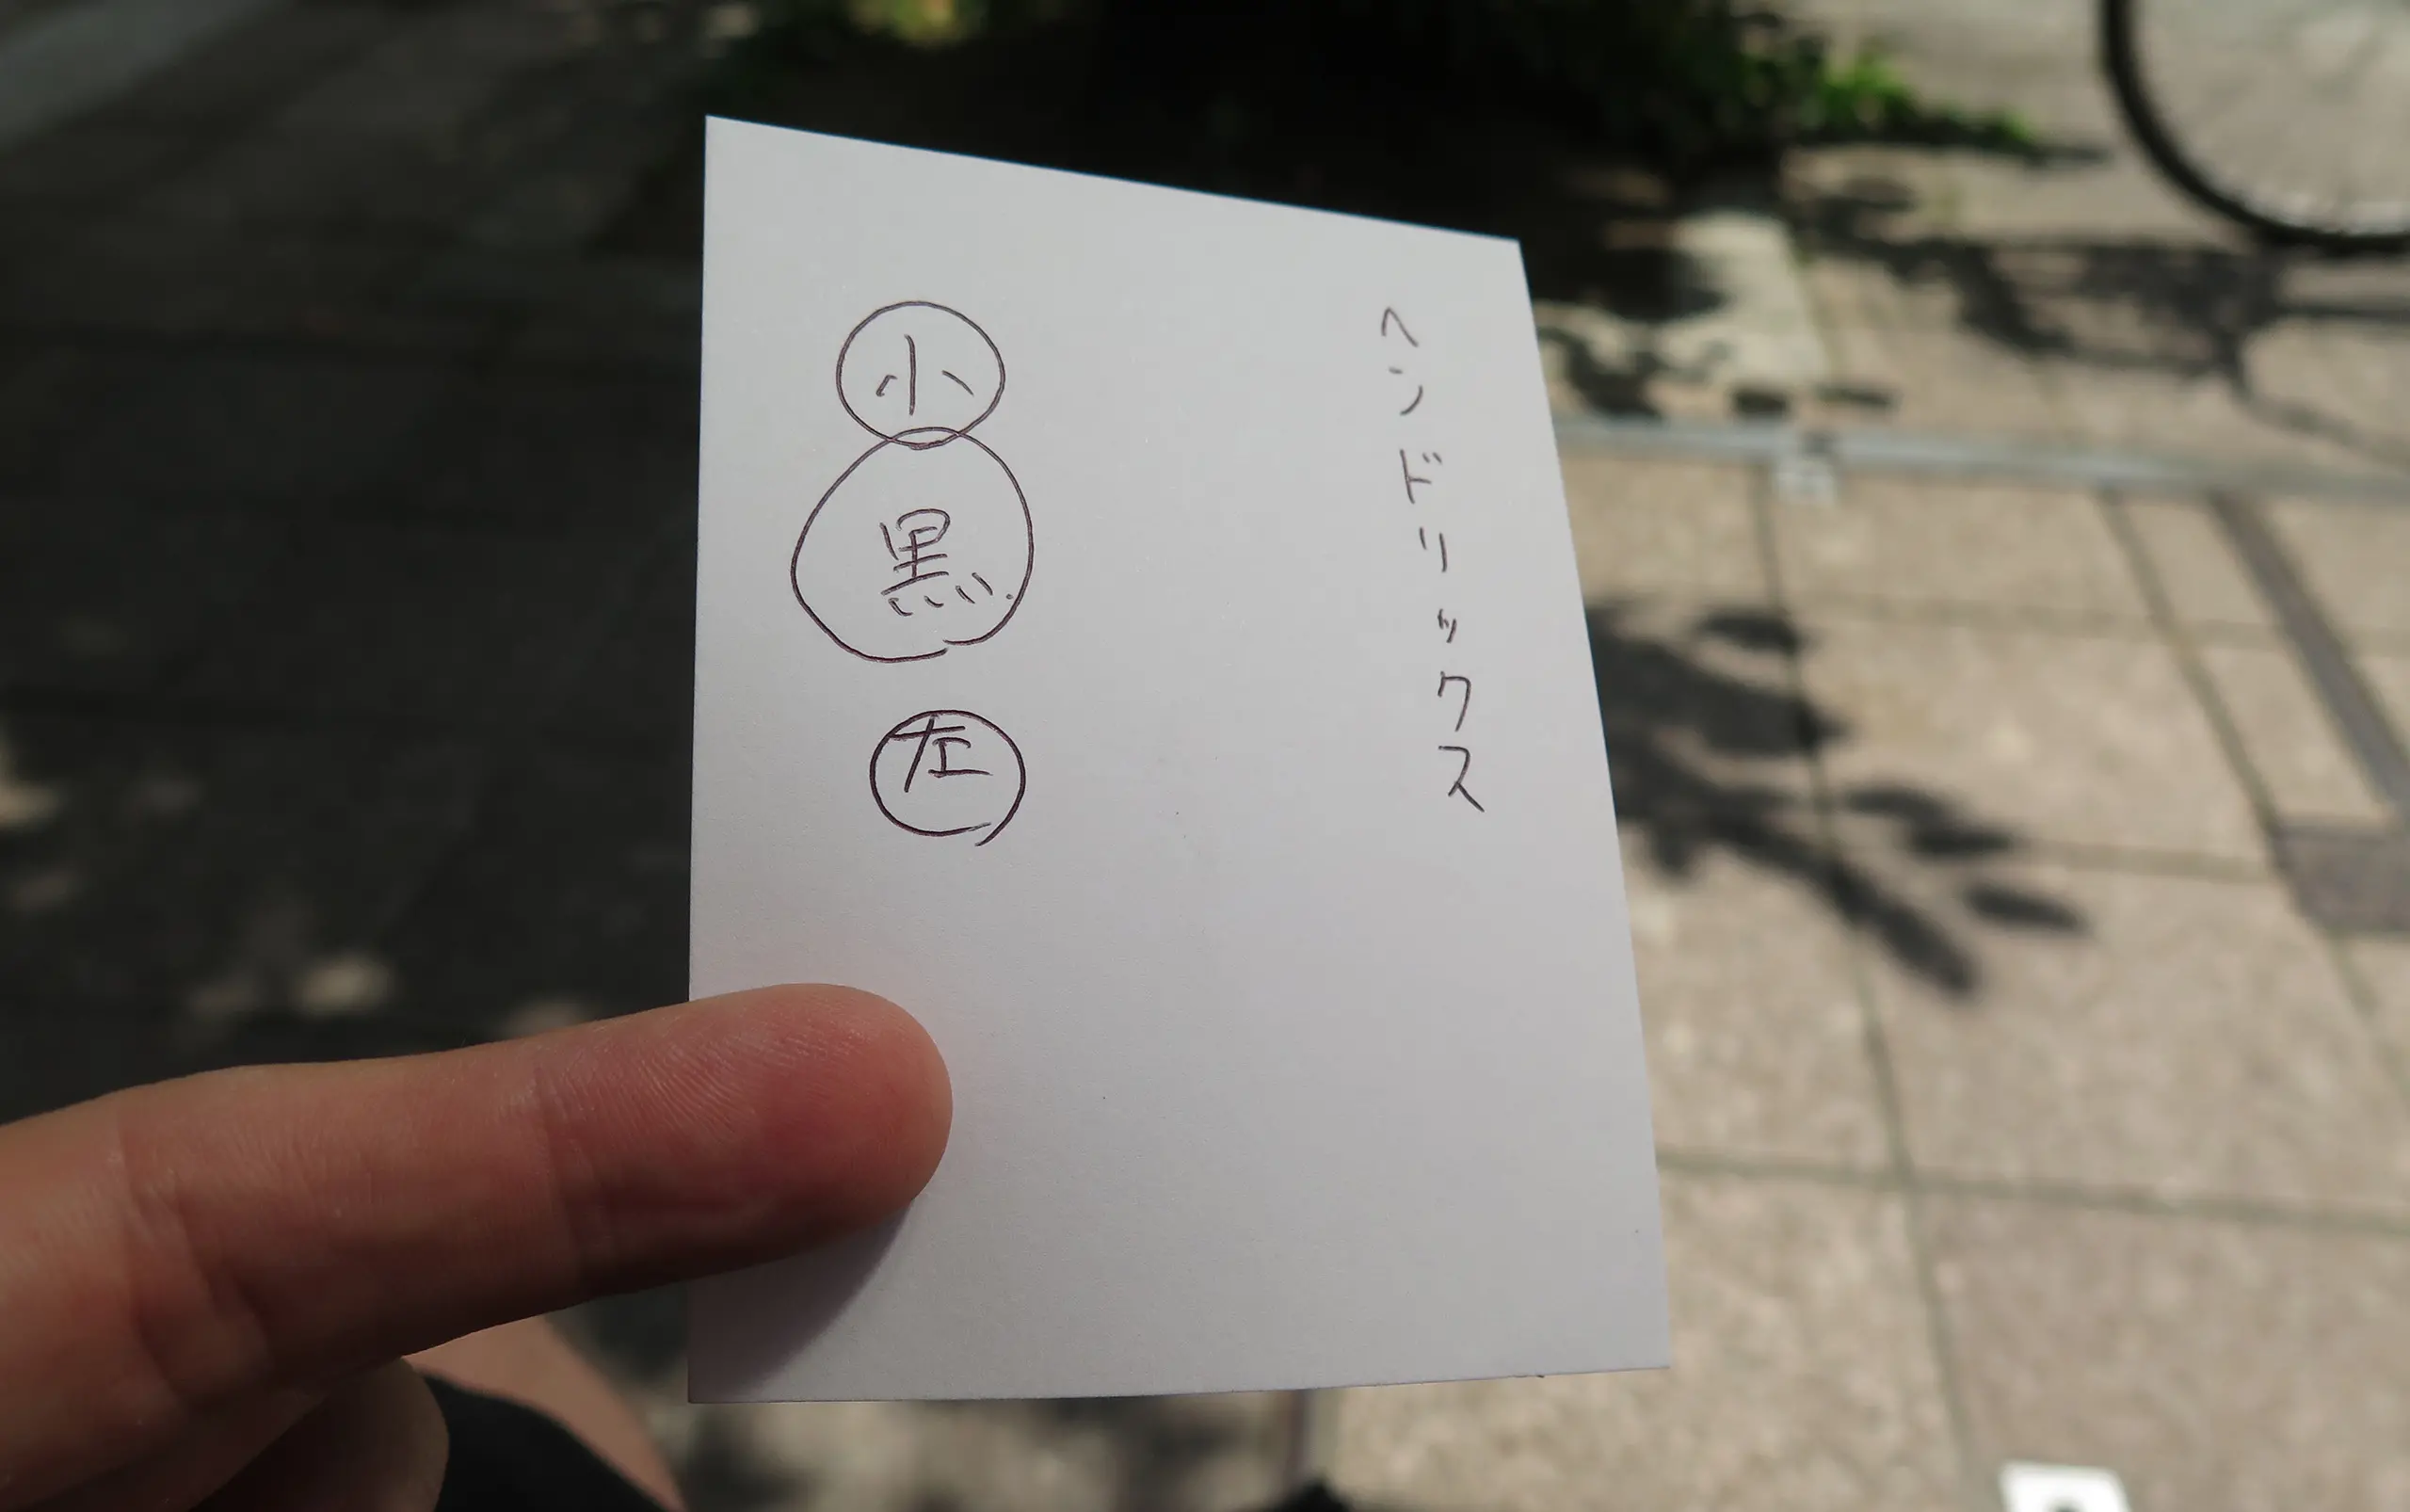 ヘンドリックス
小
黒
左